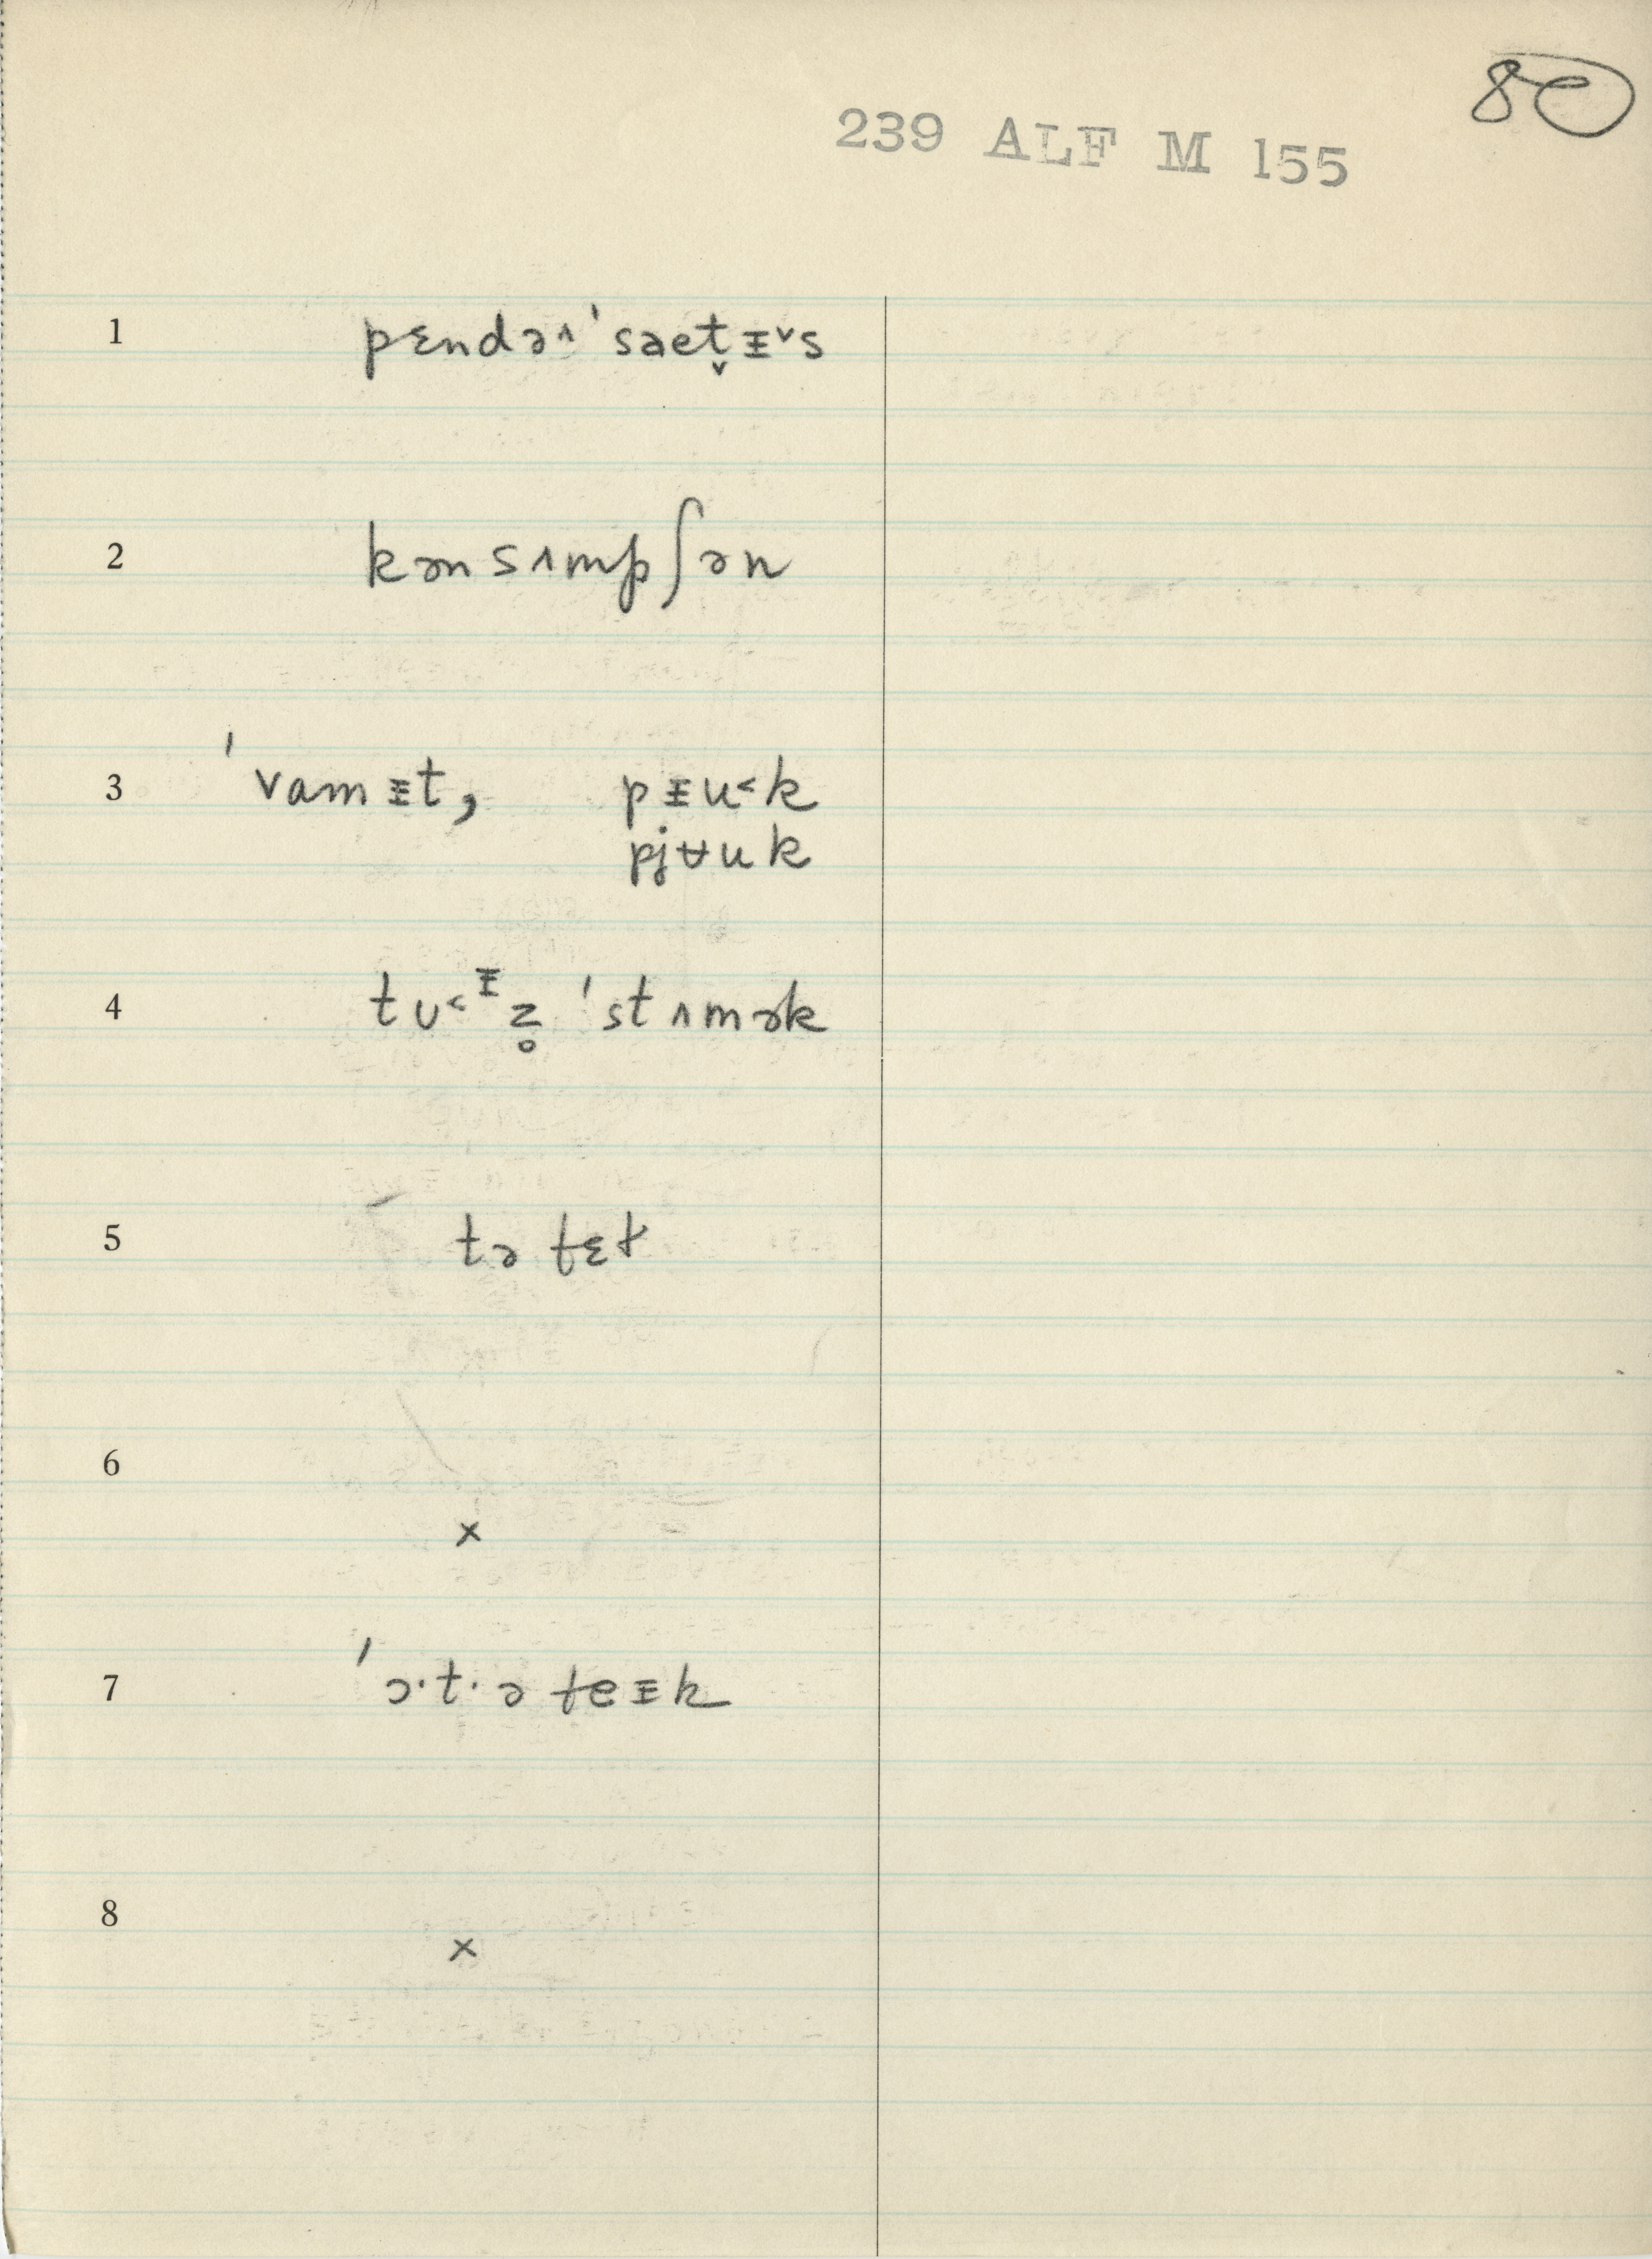 80
239 ALF M 155
1 pɛndə˄ˈsaet̬ᵻ˅s
2 kənsʌmpʃən
3 ˈvamᵻt, pᵻu˂k
pjʉuk
4 tu˂ᵻz̥ ˈstʌmək
5 tə fɛt
6 x
7 ˈɔ·t·ə teᵻk
8 x